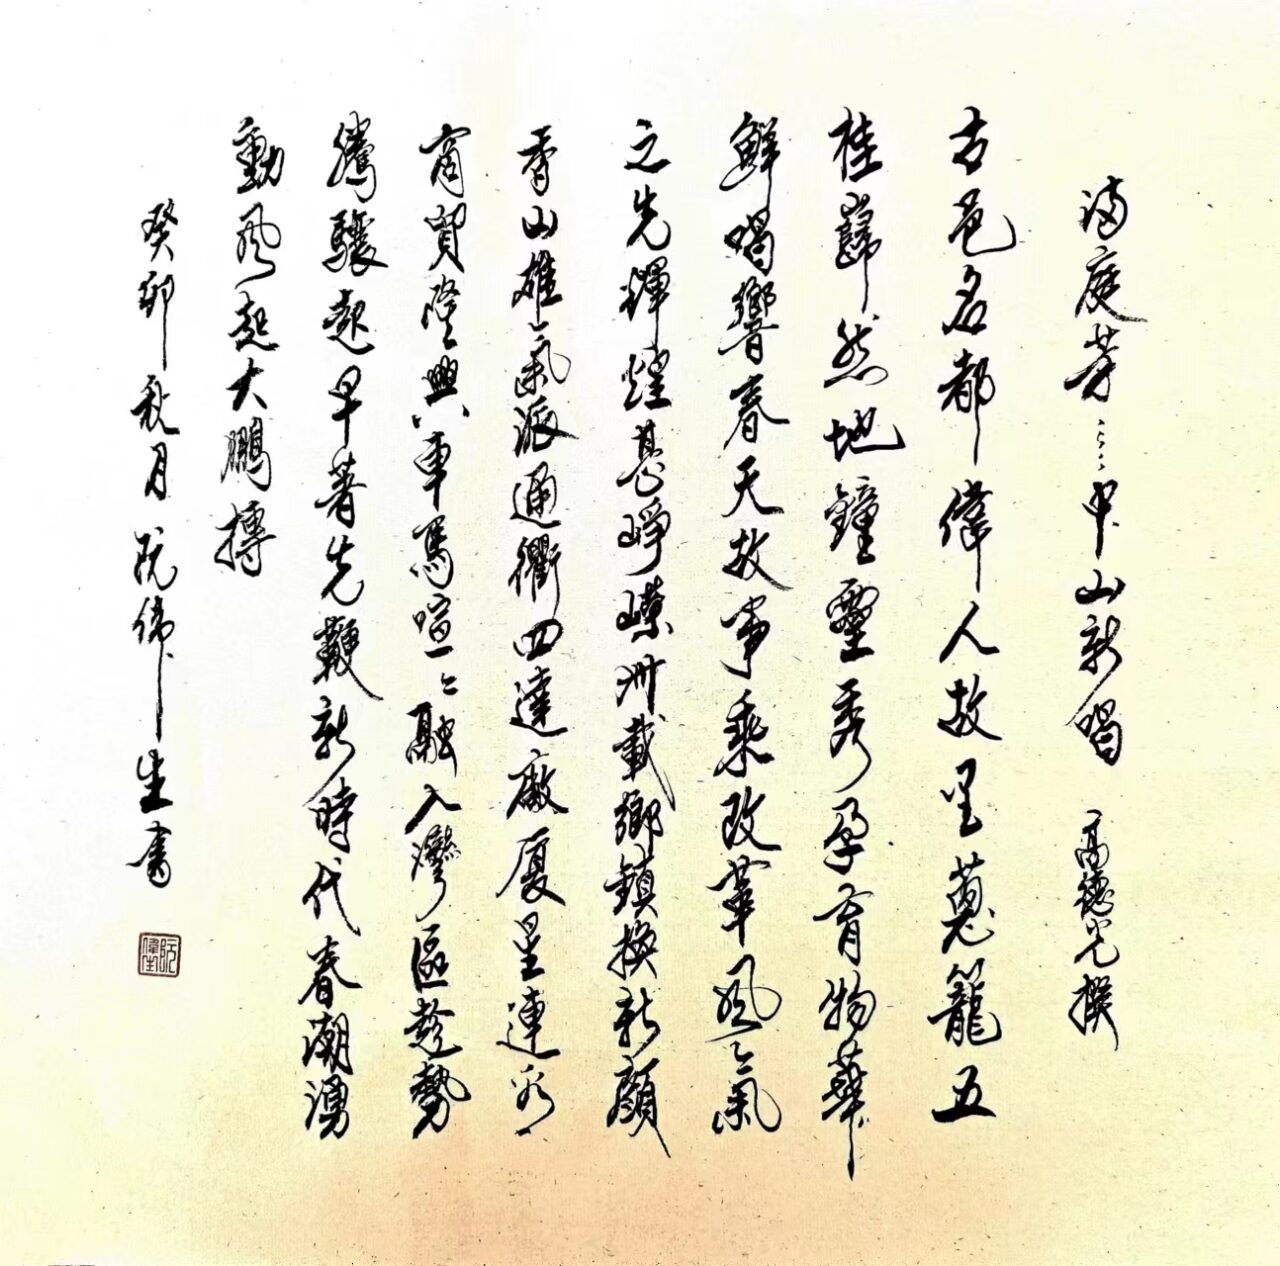 满庭芳……中山新唱 高德光撰
古邑名都偉人故里蔥蘢五
桂巋然地鐘靈秀孕育物華
鮮唱響春天故事乘改革風氣
之先輝煌甚崢嶸卅載鄉鎮換新顏
香山雄氣派通衢四達廠厦星連
商貿隆興車馬喧喧融入灣區趁勢
騰驤起早著先鞭新時代春潮湧
動風起大鵬摶
癸卯秋月阮偉生書
阮偉生